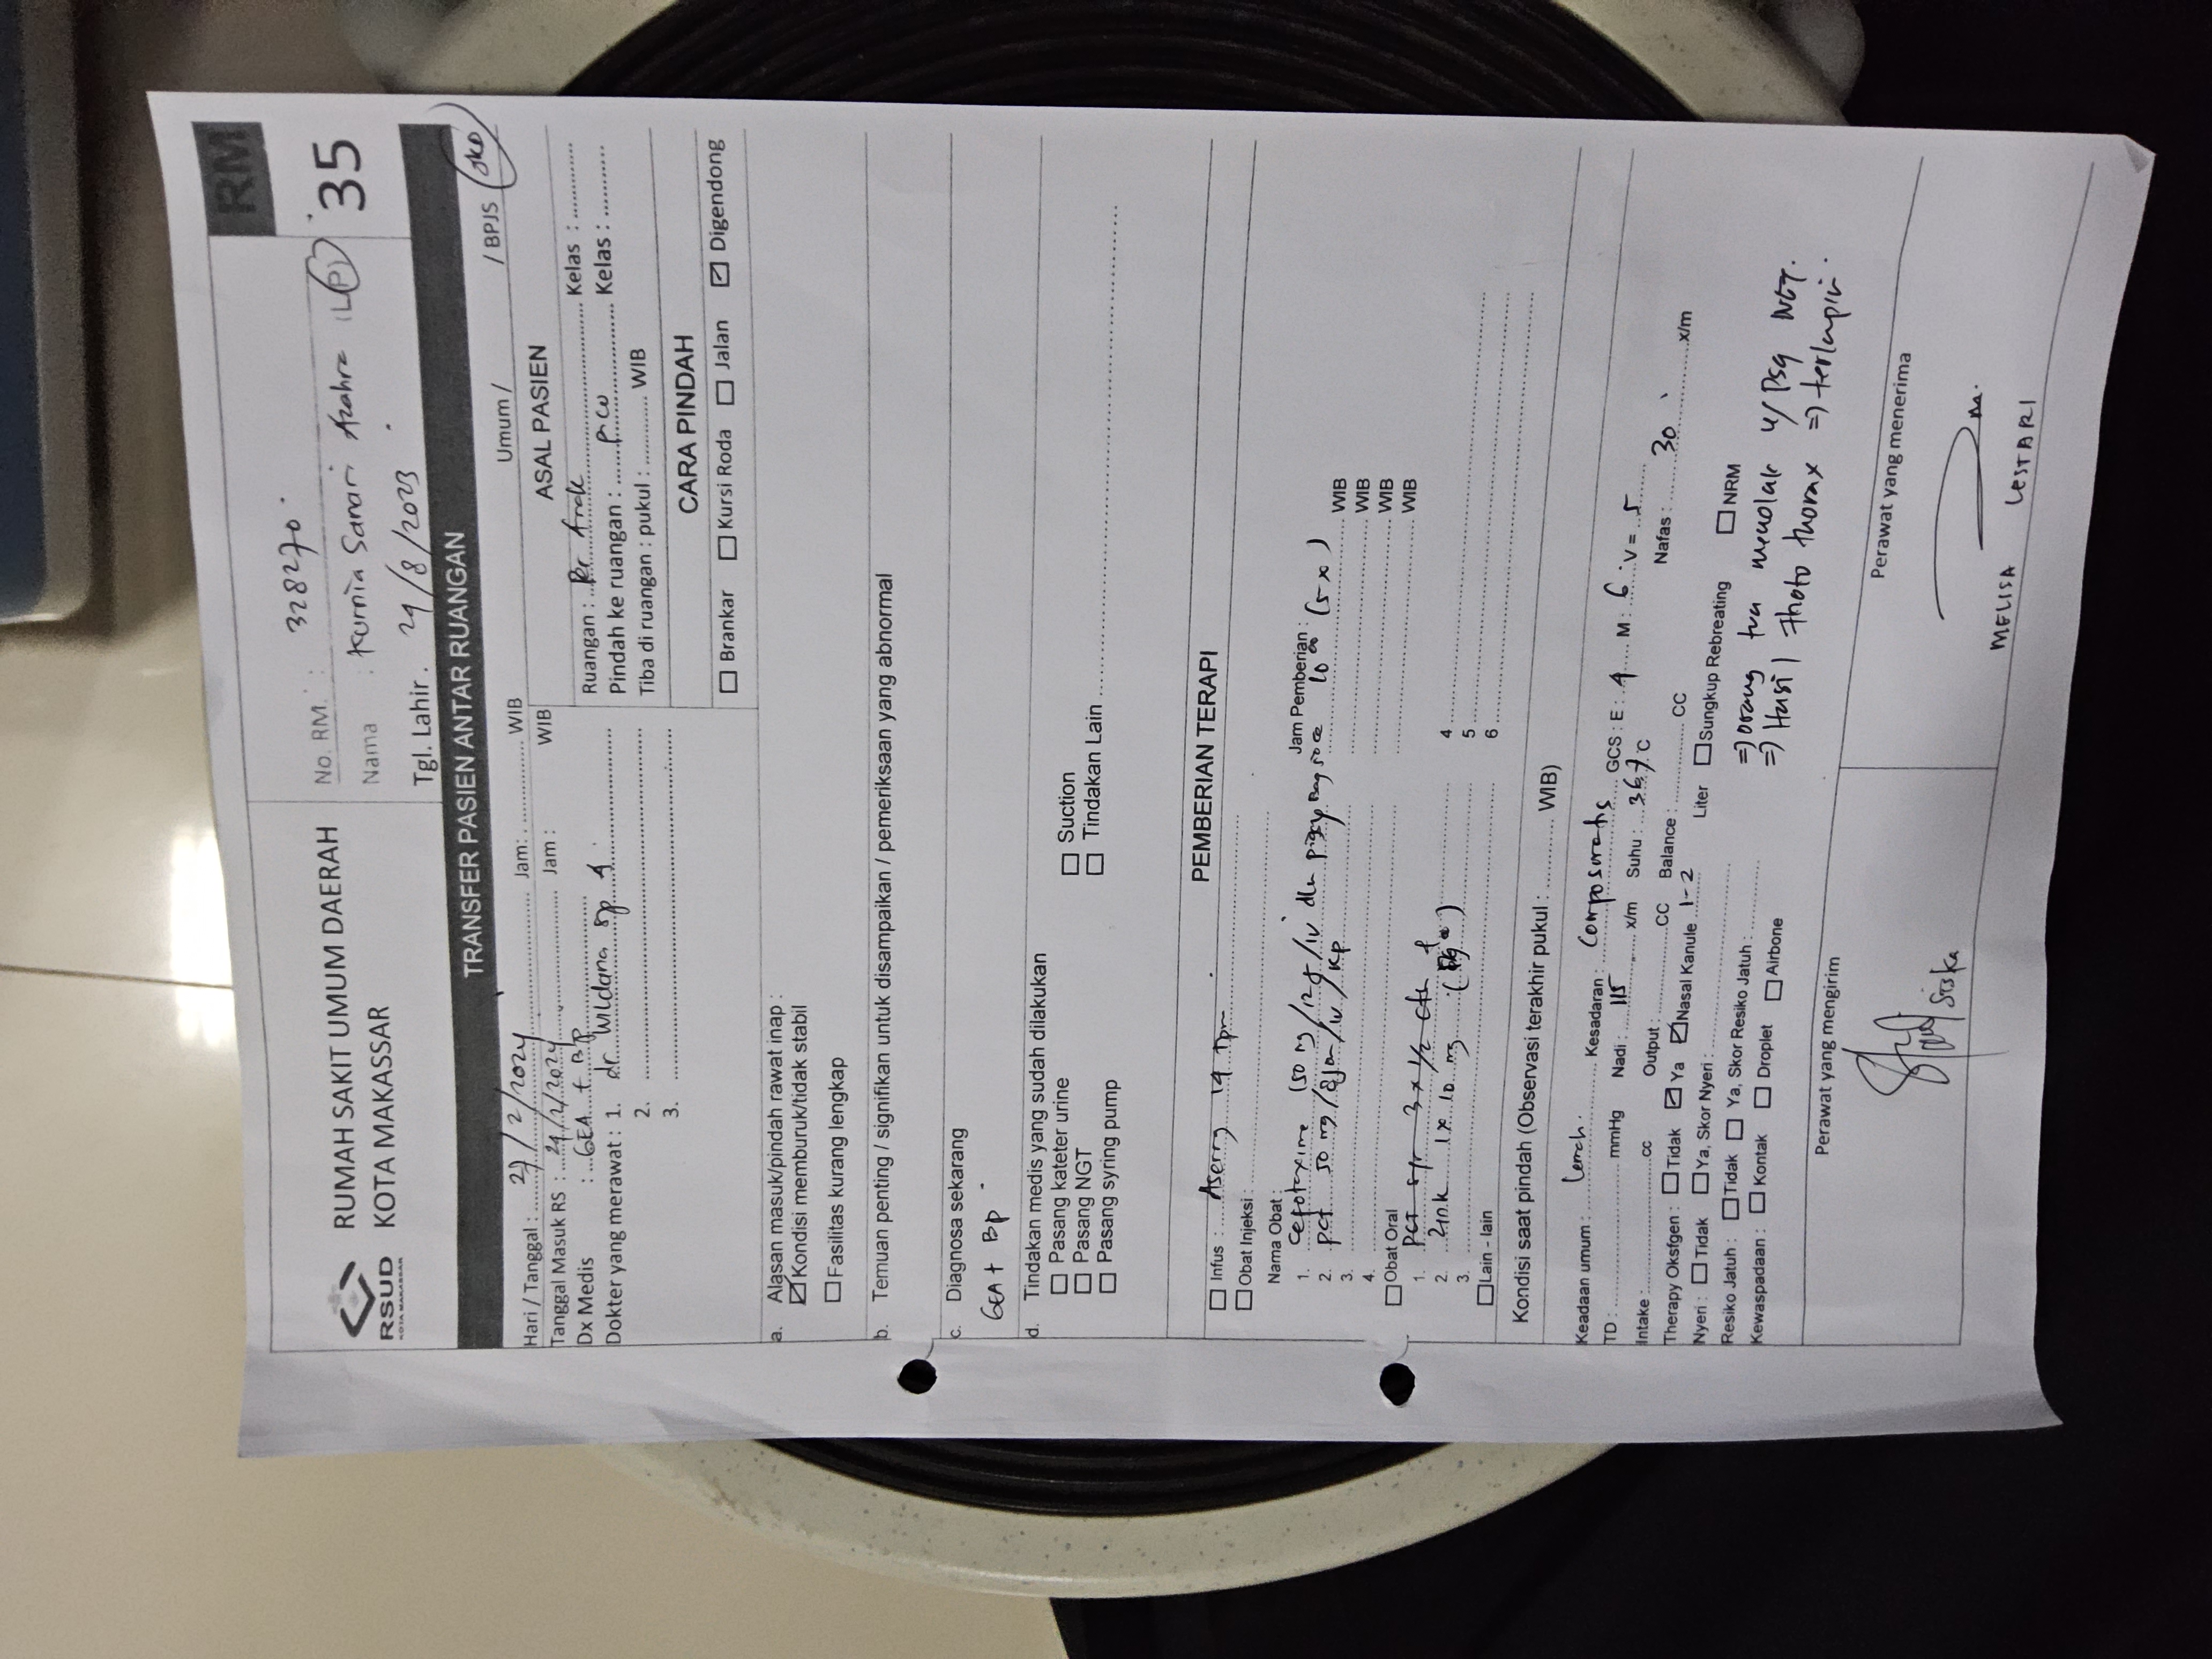 RM
35
No. RM. : 328270.
Nama : Kurnia Sanari Azahra (L/P)
Tgl. Lahir. 29/8/2023
RSUD
KOTA MAKASSAR
RUMAH SAKIT UMUM DAERAH
KOTA MAKASSAR
TRANSFER PASIEN ANTAR RUANGAN
Umum / / BPJS
Hari / Tanggal : 27/2/2024 Jam: WIB
Tanggal Masuk RS : 24/2/2024 Jam : WIB
Dx Medis : GEA + BP
Dokter yang merawat : 1. dr Wildana Sp A.
2.
3.
ASAL PASIEN
Ruangan : Kelas :
Pindah ke ruangan : Picu Kelas :
Tiba di ruangan : pukul : WIB
CARA PINDAH
Brankar Kursi Roda Jalan Digendong
a. Alasan masuk/pindah rawat inap :
Kondisi memburuk/tidak stabil
Fasilitas kurang lengkap
b. Temuan penting / signifikan untuk disampaikan / pemeriksaan yang abnormal
c. Diagnosa sekarang
GEA + BP.
d. Tindakan medis yang sudah dilakukan
Pasang kateter urine Suction
Pasang NGT Tindakan Lain
Pasang syring pump
PEMBERIAN TERAPI
Infus : Asering 14 tpm
Obat Injeksi :
Nama Obat : Jam Pemberian :
1. Cefotaxime 150 mg/12j/iv dlm WIB
2. pct 50 mg/8jam/iv/kp WIB
3. WIB
4. WIB
Obat Oral
1. PCT syr 3 x 1/2 cth 4
2. Zink 1x10 mg 5
3. 6
Lain - lain
Kondisi saat pindah (Observasi terakhir pukul : WIB)
Keadaan umum : lemah Kesadaran : Composmentis GCS : E : 4 M : 6 V = 5
TD : mmHg Nadi : 115 x/m Suhu : 36,7 °C Nafas : 30 x/m
Intake : cc Output : CC Balance : CC
Therapy Oksfgen : Tidak Ya Nasal Kanule 1-2 Liter Sungkup Rebreating NRM
Nyeri : Tidak Ya, Skor Nyeri :
Resiko Jatuh : Tidak Ya, Skor Resiko Jatuh :
Kewaspadaan : Kontak Droplet Airbone
=> orang tua menolak u/ psg NGT.
=> Hasil Photo thorax => terlampir.
Perawat yang mengirim Perawat yang menerima
Siska
MELISA LESTARI